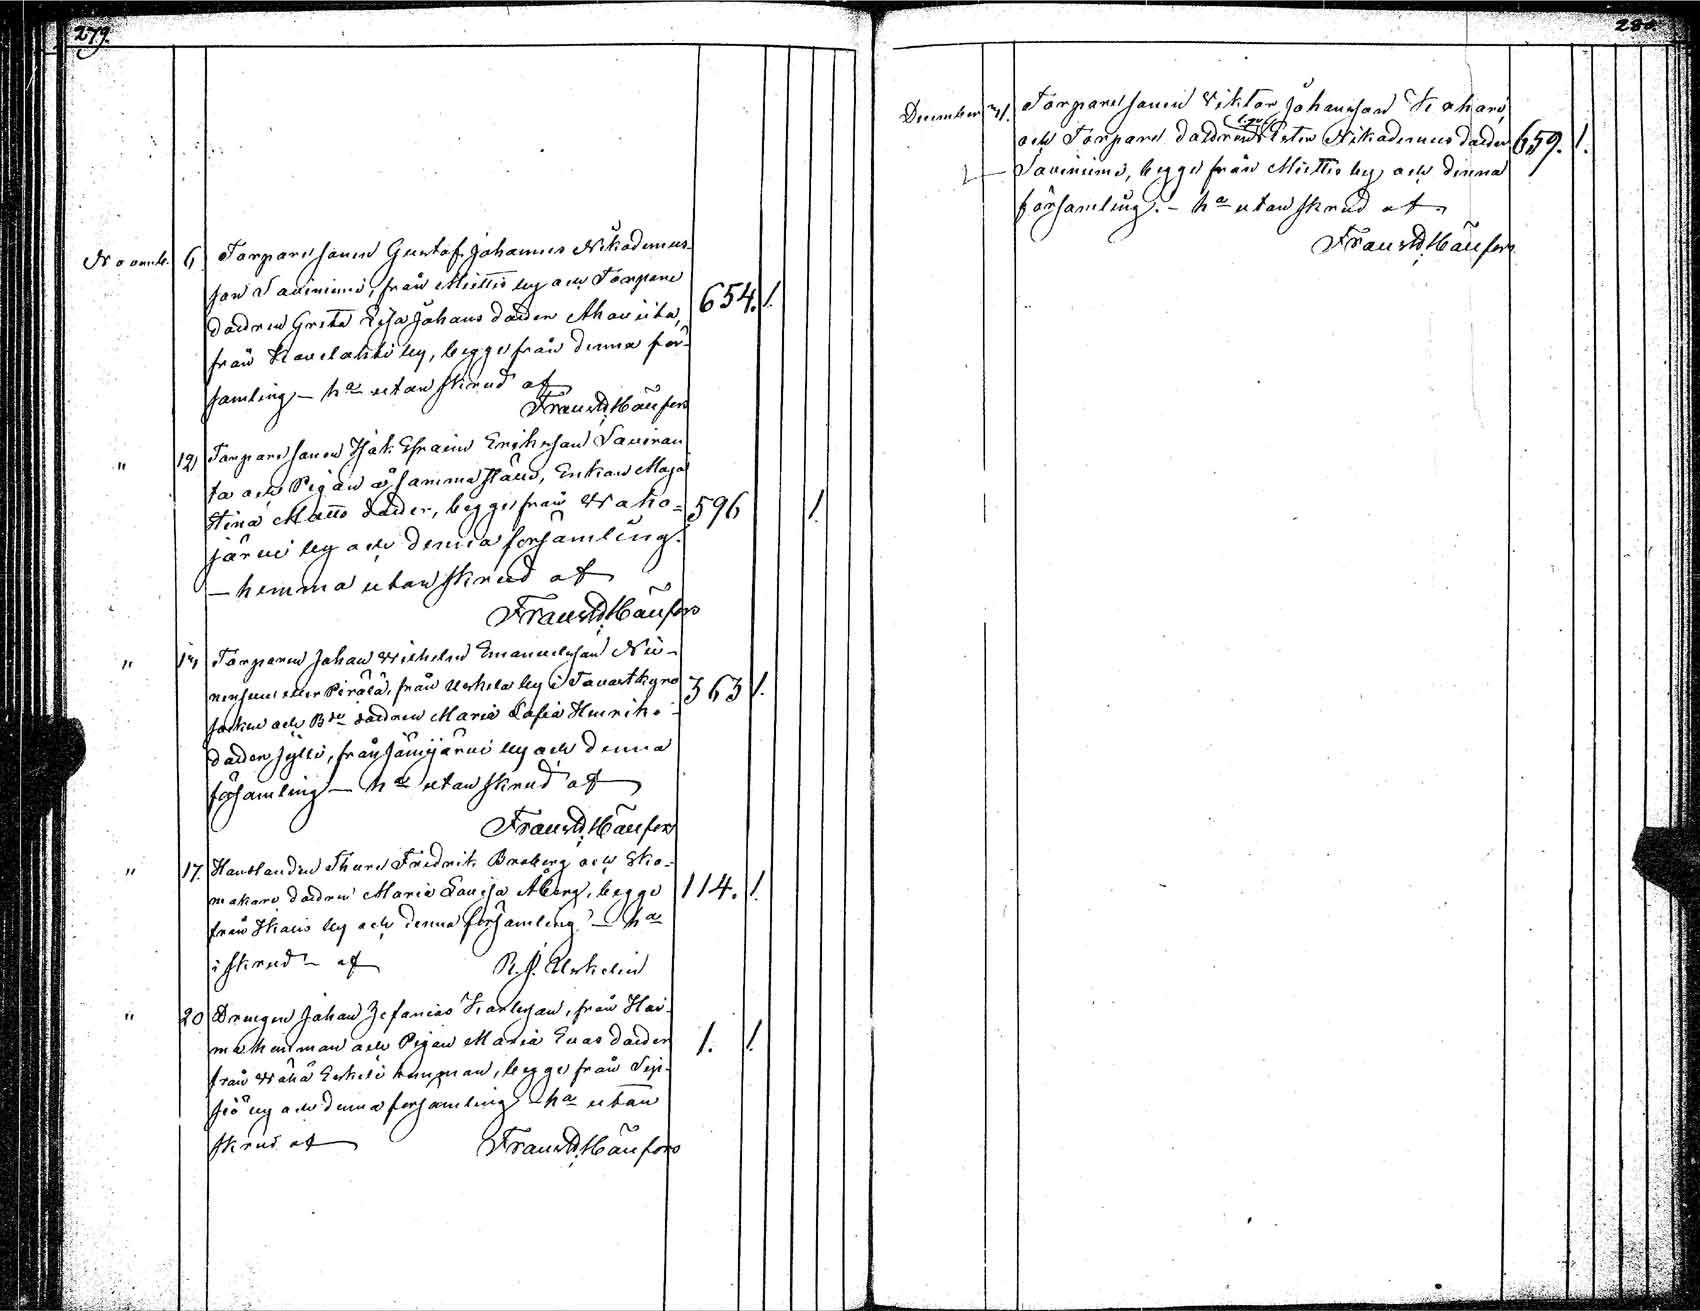 279.
Novemb. 6 Torpare sonen Gustaf Johannes Nikodemus-
son Saviniemi, från Miettis by och Torpare
dottren Greta Lisa Johans dotter Ahoviita,
från Kovelahti by, begge från denna för-
samling – ha utan skrud af
Frans Wd. Hänfors
654. 1.
" 12) Torpare sonen Isak Efraim Eriksson Saviran
ta och Pigan å samma ställe, Enkan Maja
Stina Matts dotter, begge från Waho-
järvi by och denna församling.
– hemma utan skrud af
Frans Wd. Hänfors
596 1
" Torparen Johan Wilhelm Emanuelsson Nii-
från Uskela by i Tavastkyro
socken och Bde dottren Maria Sofia Henriks-
dotter Jylli, från Jämijärvi by och denna
församling – ha utan skrud af
Frans Wd. Hänfors
363 1.
" 17. Handlanden Thure Fredrik Broberg och Sko-
makare dottren Maria Lovisa Åberg, begge
från Ikalis by och denna församling – ha
i skrud – af R. J. Uskelin
114. 1.
" 20 Drengen Johan Zefanias Karlsson, från
hemman och Pigan Maria Evas dotter
från Wähä Eskeli hemman, begge från Sip-
siö by och denna församling – ha utan
skrud af Frans Wd. Hänfors
1. 1.
280
December Torpare sonen Viktor Johansson Kohari,
och Torpare dottren Nikodemus dotter
Saviniemi, begge från Miettis by och denna
församling. – ha utan skrud af
Frans Wd. Hänfors
659. 1.